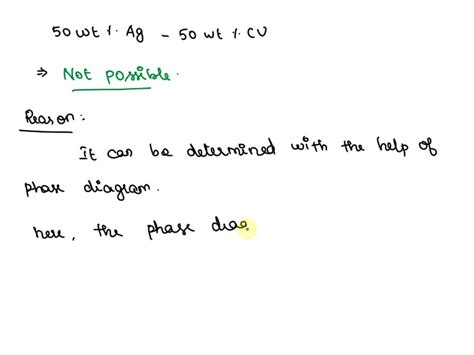 50 wt %. Ag - 50 wt %. CU
⇒ Not possible.
Reason:
It can be determined with the help of
phase diagram.
here, the phase diag